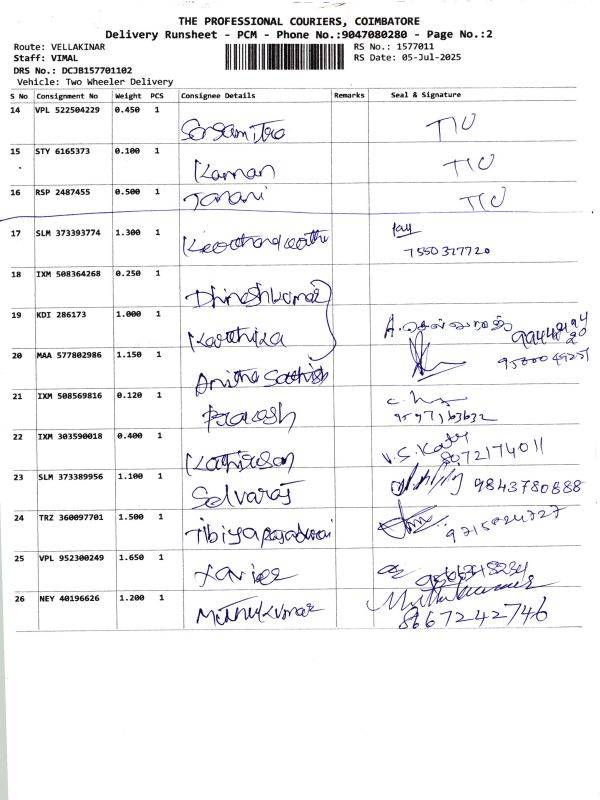 THE PROFESSIONAL COURIERS, COIMBATORE
Delivery Runsheet - PCM - Phone No.:9047080280 - Page No.:2
Route: VELLAKINAR RS No.: 1577011
Staff: VIMAL RS Date: 05-Jul-2025
DRS No.: DCJB157701102
Vehicle: Two Wheeler Delivery
S No Consignment No Weight PCS Consignee Details Remarks Seal & Signature
14 VPL 522504229 0.450 1
15 STY 6165373 0.100 1 Kannan
16 RSP 2487455 0.500 1 Janani
17 SLM 373393774 1.300 1 7550377720
18 IXM 508364268 0.250 1 Dhineshkumar
19 KDI 286173 1.000 1 Karthika
20 MAA 577802986 1.150 1 Anitha Sathish
21 IXM 508569816 0.120 1 Prakash 9597163632
22 IXM 303590018 0.400 1 Kathiresan 8072174011
23 SLM 373389956 1.100 1 Selvaraj 9843780888
24 TRZ 360097701 1.500 1
25 VPL 952300249 1.650 1 Xavier
26 NEY 40196626 1.200 1 Muthukumar Muthukumar
8667242746